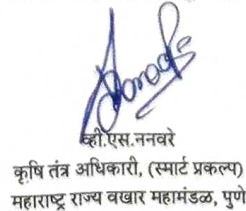 व्ही.एस.ननवरे
कृषि तंत्र अधिकारी, (स्मार्ट प्रकल्प)
महाराष्ट्र राज्य वखार महामंडळ, पुणे